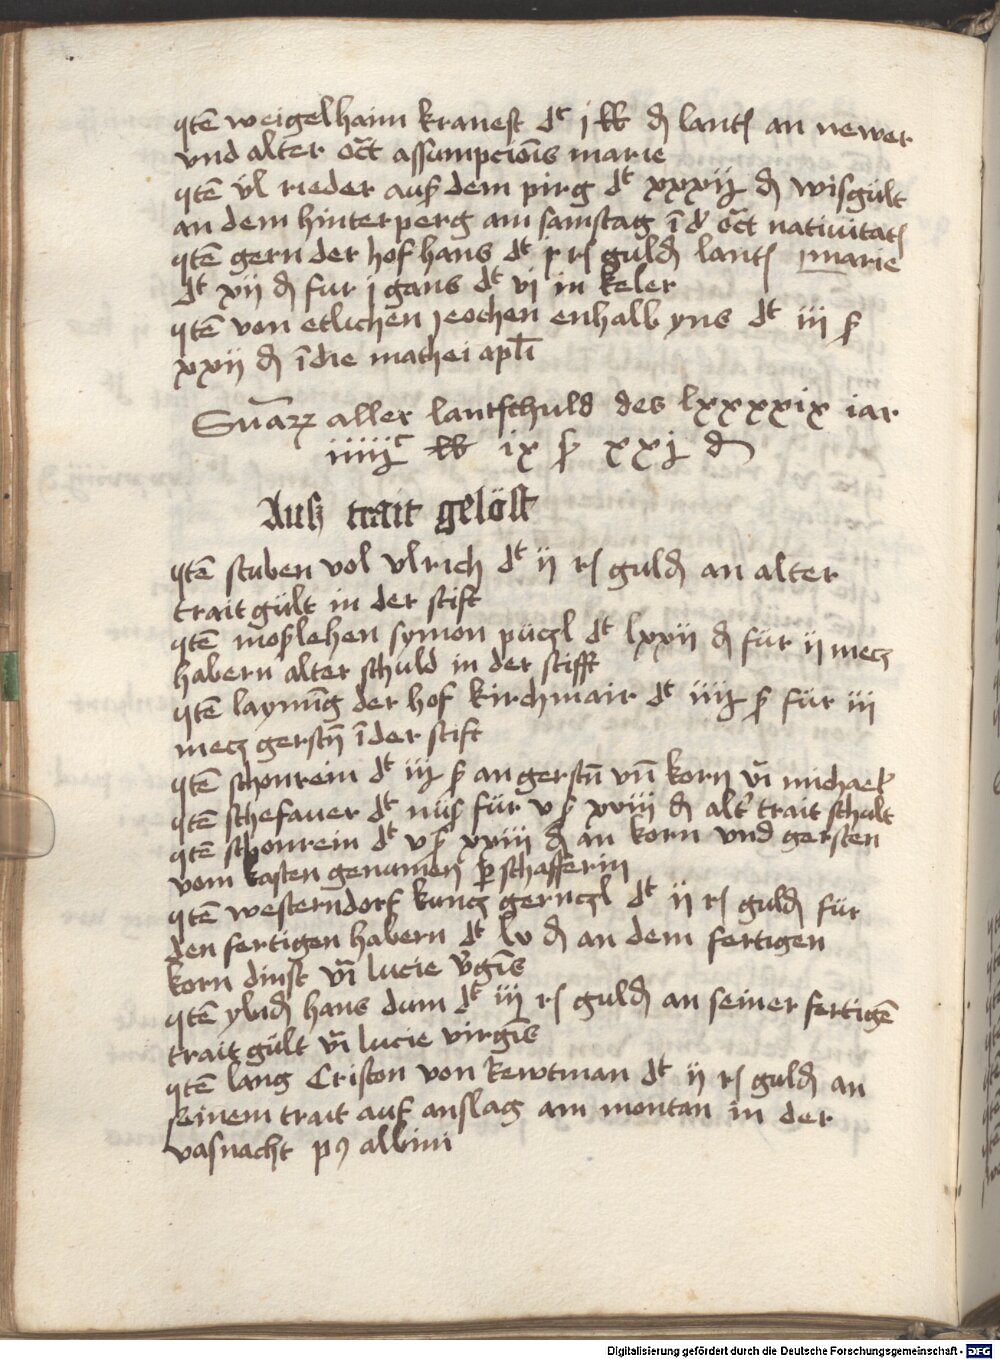 qtē weigelhaim kranest dt j lb ₰ lantſ an newer
vnd alter oc̄t assumpcioīs marie
qtē v̈l rieder auß dem pirg dt xxxij ₰ wisgült
an dem hinterperg am samstag ī d' oc̄t nativitatſ
qtē gern der hof hans dt x rſ guld₰ lantſ marie
dt xij ₰ fur j gans dt vj in keler
qtē von etlichen jeochen enhalb yns dt iij ß
xxij ₰ ī die mathei apl̄i
Suma aller lantschuld des lxxxxix iar
iiijc lb ix ß xxj ₰
Auß trait gelöst
qtē stuben vol vlrich dt ij rſ guld₰ an alter
trait gült in der stift
qtē moßlehen symon püczl dt lxxij ₰ für ij mecz
habern alter schuld in der stifft
qtē laymīg der hof kirchmair dt iiij ß für iij
mecz gerstn̄ ī der stift
qtē schonrein dt iij ß an gerstn̄ vn̄ korn vī michael'
qtē schefauer dt für v ß xviij ₰ alt' trait schult
qtē schonrein dt v ß xviij ₰ an korn vnd gersten
vom kasten genumen ꝑ schafferin
qtē westerndorf kuncz gernczl dt ij rſ guld₰ für
den fertigen habern dt lv ₰ an dem fertigen
korn dinst vī lucie v̄gīs
qtē hans dum dt iij rſ guld₰ an seiner fertigē
trait gült vī lucie virgīs
qtē lang Criston von kewtman dt ij rſ guld₰ an
seinem trait auf anslag am montan in der
vasnacht pꝰ albini
Digitalisierung gefördert durch die Deutsche Forschungsgemeinschaft - DFG